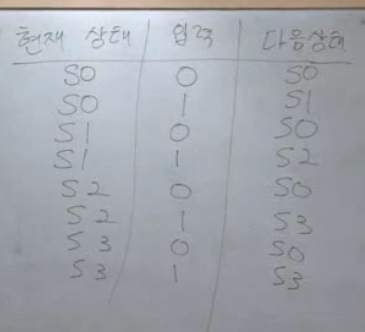 현재 상태 입력 다음상태
S0 0 S0
S0 1 S1
S1 0 S0
S1 1 S2
S2 0 S0
S2 1 S3
S3 0 S0
S3 1 S3